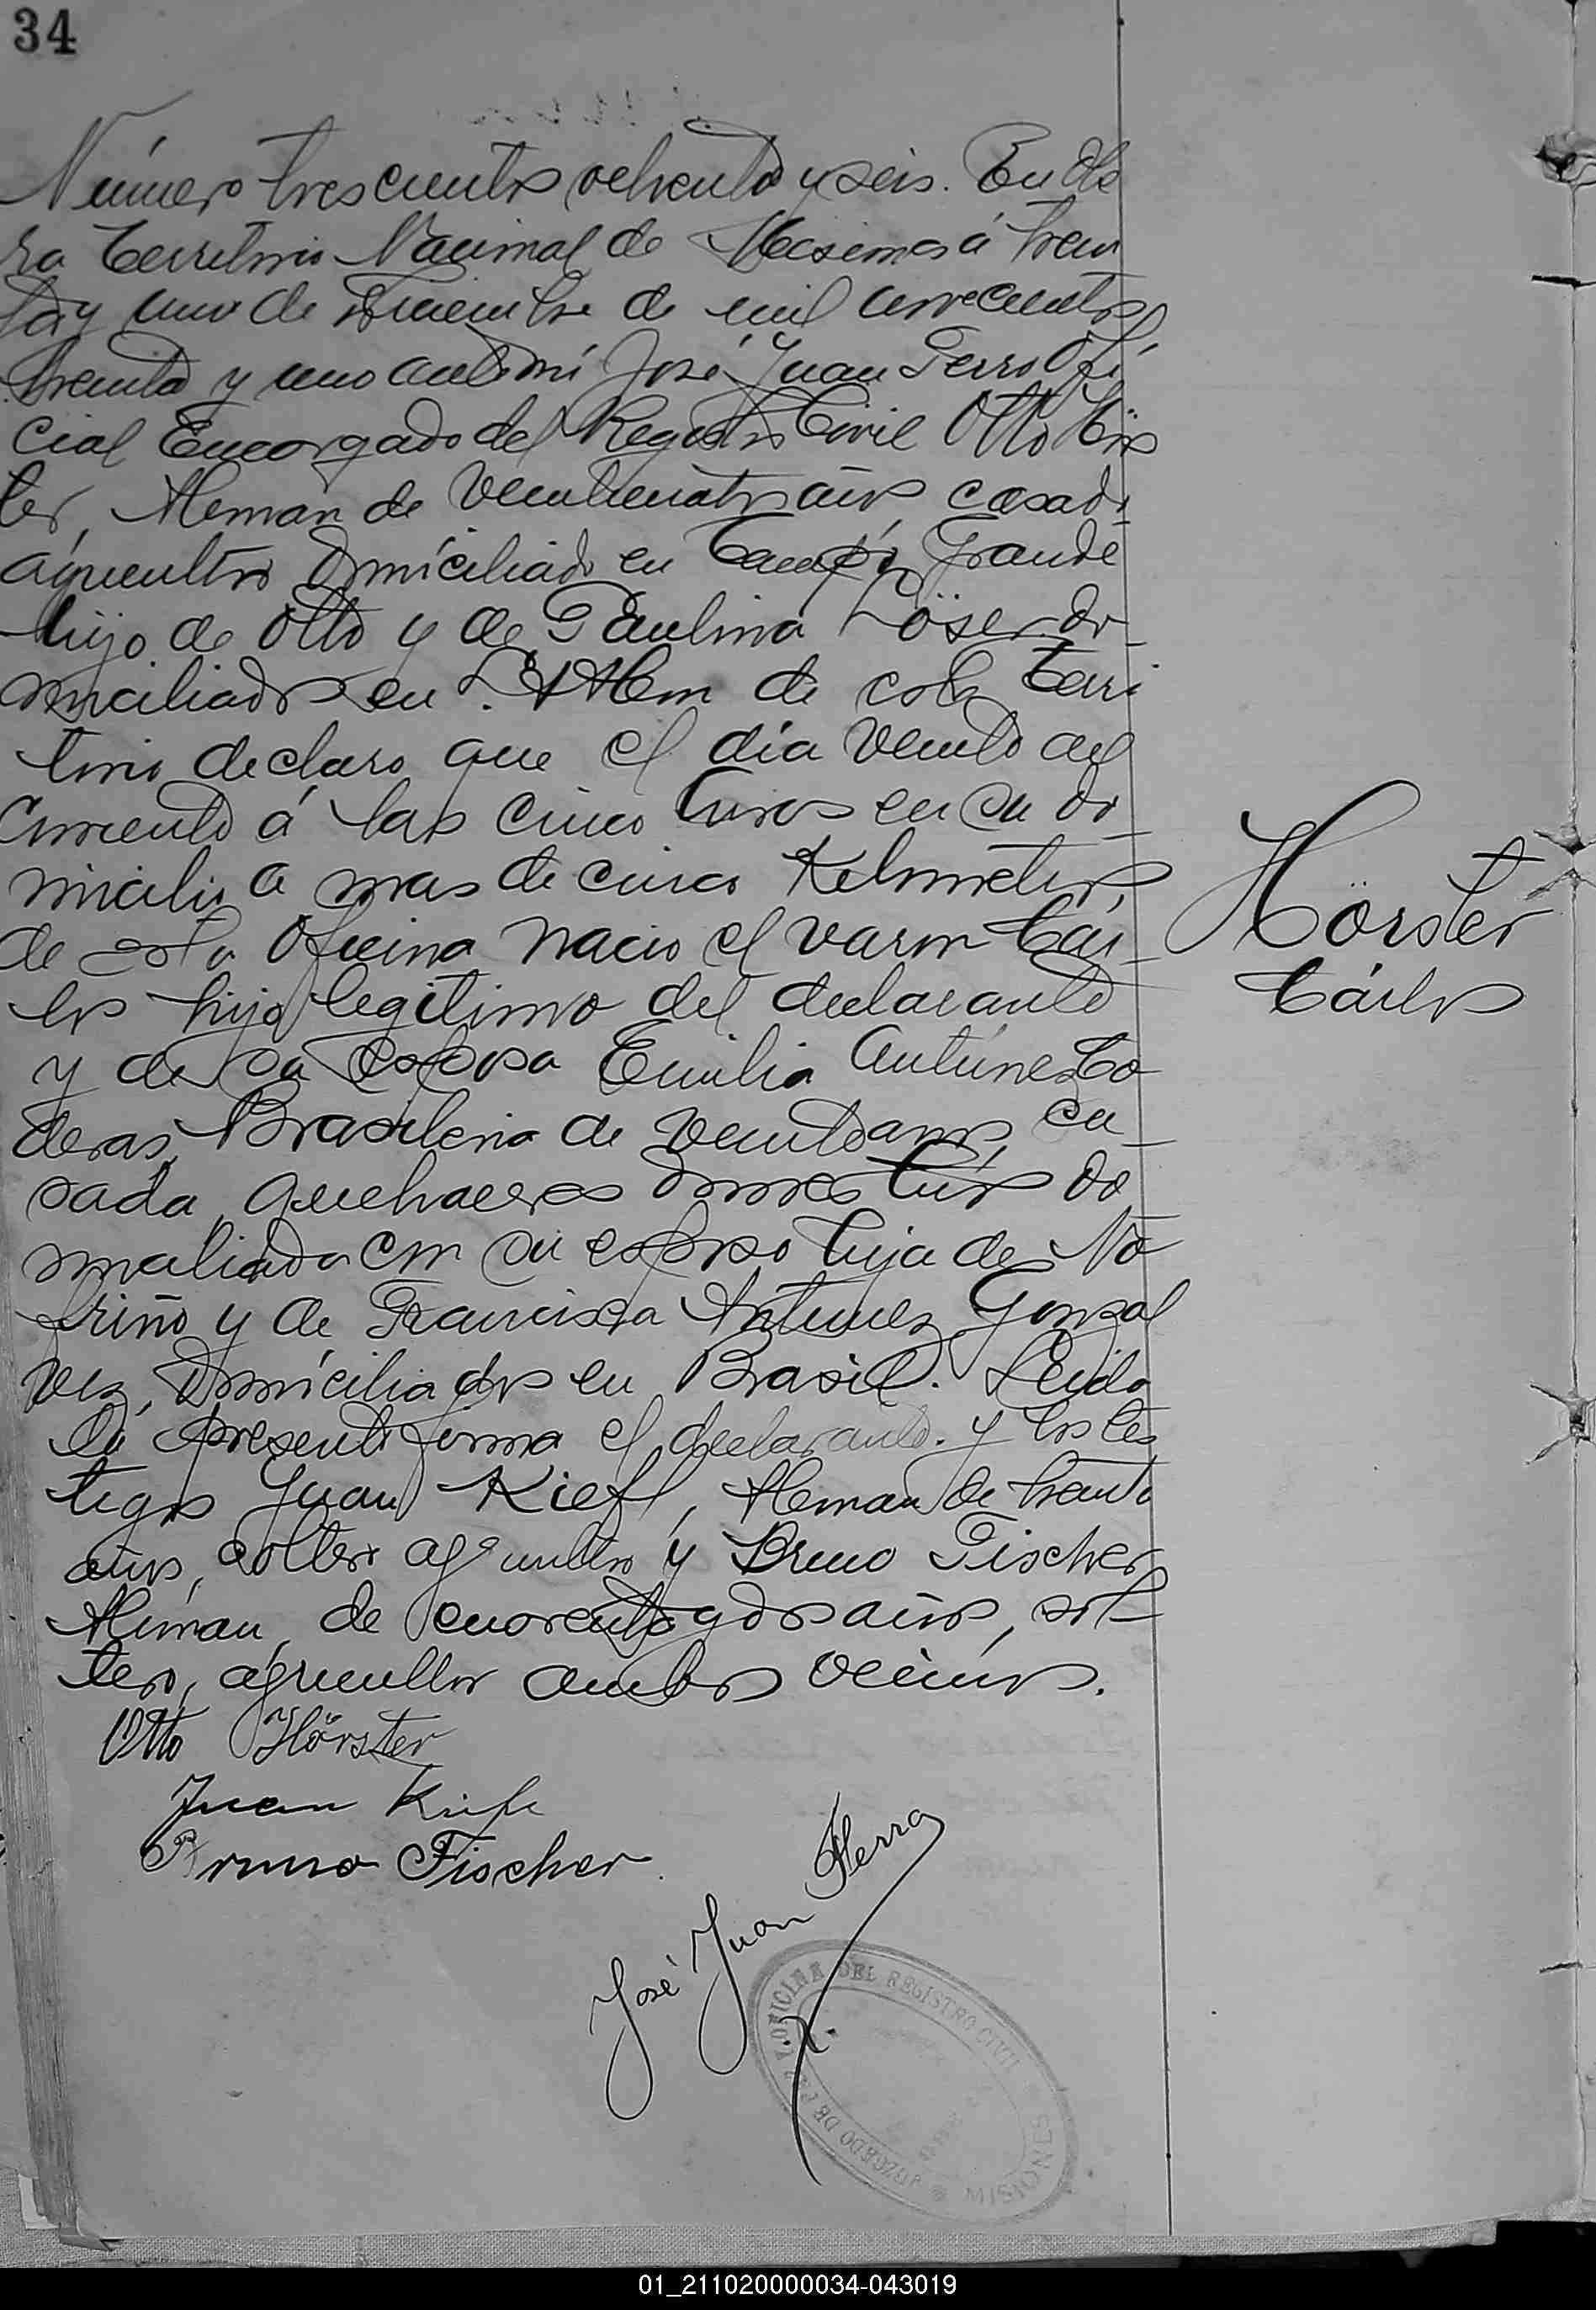 34
Número trescientos ochenta y seis. En Obe
ra Territorio Nacional de Misiones á trein
ta y uno de Diciembre de mil novecientos
treinta y uno ante mí José Juan Ferro Ofi
cial Encargado del Registro Civil Otto Hörs
ter, Aleman de veinticuatro años, casado
agricultor domiciliado en Campo Grande
hijo de Otto y de Paulina Löser do-
miciliados en L. N. Alem de este Terri
torio declaro que el día veinte del
corriente á las cinco horas en su do-
micilio a mas de cinco Kilometros
de esta Oficina nacio el varon Cár-
los hijo legitimo del declarante
y de su esposa Emilia Antúnez Co
deras, Brasileña de veinte años, ca-
sada, quehaceres domesticos do
miciliada con su esposo hija de No
friño y de Francisca Antunez Gonzal
vez, domiciliados en Brasil. Leida
la presente firma el declarante y los tes
tigos Juan Kiefl, Aleman de treinta
años, soltero agricultor y Bruno Fischer
Aleman, de cuarenta y dos años, sol-
tero, agricultor ambos vecinos.
Hörster
Cárlos
Otto Hörster
Juan
Bruno Fischer
José Juan Ferro
OFICINA DEL REGISTRO CIVIL
JUZGADO DE PAZ Y
MISIONES
01_211020000034-043019